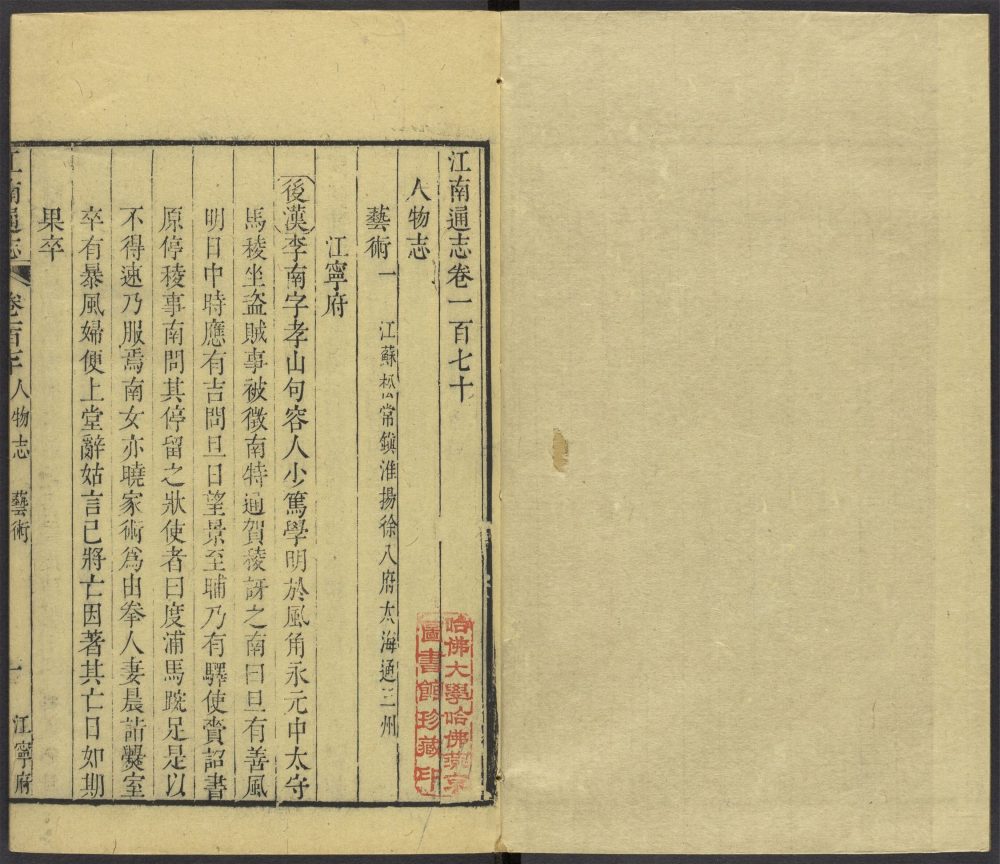 江南通志卷一百七十
人物志
藝術一 江蘇松常鎮淮揚徐八府太海通三州
江寧府
後漢李南字孝山句容人少篤學明於風角永元中太守
馬稜坐盜賊事被徵南特通賀稜訝之南曰旦有善風
明日中時應有吉問旦日望景至晡乃有驛使賫詔書
原停稜事南問其停留之狀使者曰度浦馬踠足是以
不得速乃服焉南女亦曉家術爲由拳人妻晨詣爨室
卒有暴風婦便上堂辭姑言已將亡因著其亡日如期
果卒
江南通志 卷一百七十 人物志 藝術 一 江寧府
哈佛大學哈佛燕京
圖書館珍藏印